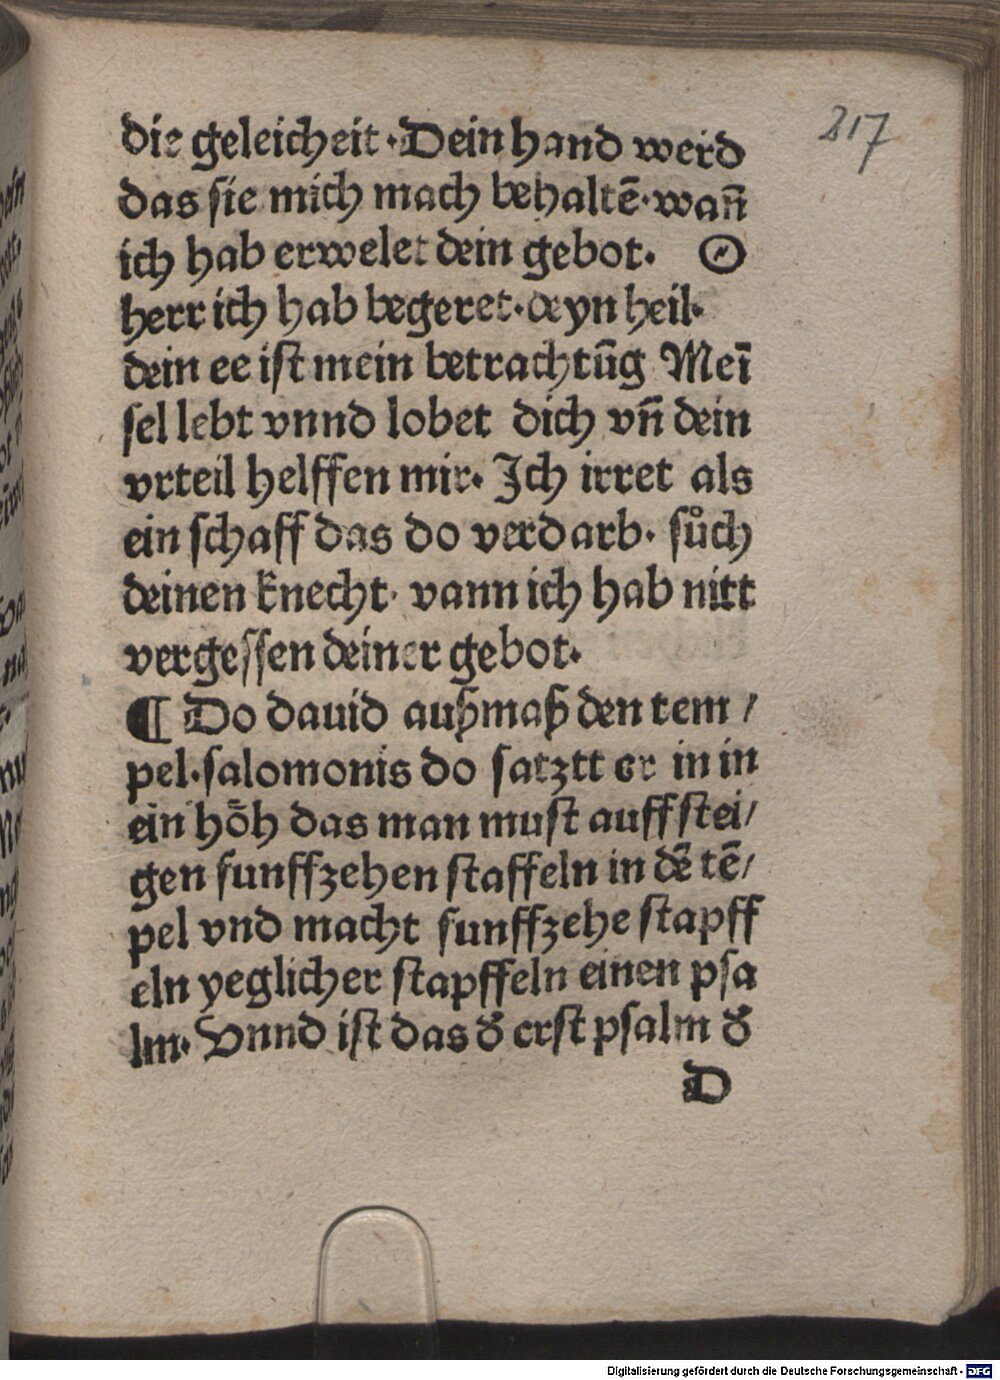 217
die geleicheit·Dein hand werd
das sie mich mach behaltē·wañ
ich hab erwelet dein gebot. O
herr ich hab begeret·deyn heil·
dein ee ist mein betrachtūg Meī
sel lebt vnnd lobet dich vñ dein
vrteil helffen mir· Ich irret als
ein schaff das do verdarb· sůch
deinen knecht· vann ich hab nitt
vergessen deiner gebot·
¶ Do dauid außmaß den tem/
pel·salomonis do satztt er in in
ein hȫh das man must auffstei/
gen funffzehen staffeln in dē tē/
pel vnd macht funffzehe stapff
eln yeglicher stapffeln einen psa
lm· Vnnd ist das ď erst psalm ď
D
Digitalisierung gefördert durch die Deutsche Forschungsgemeinschaft - DFG